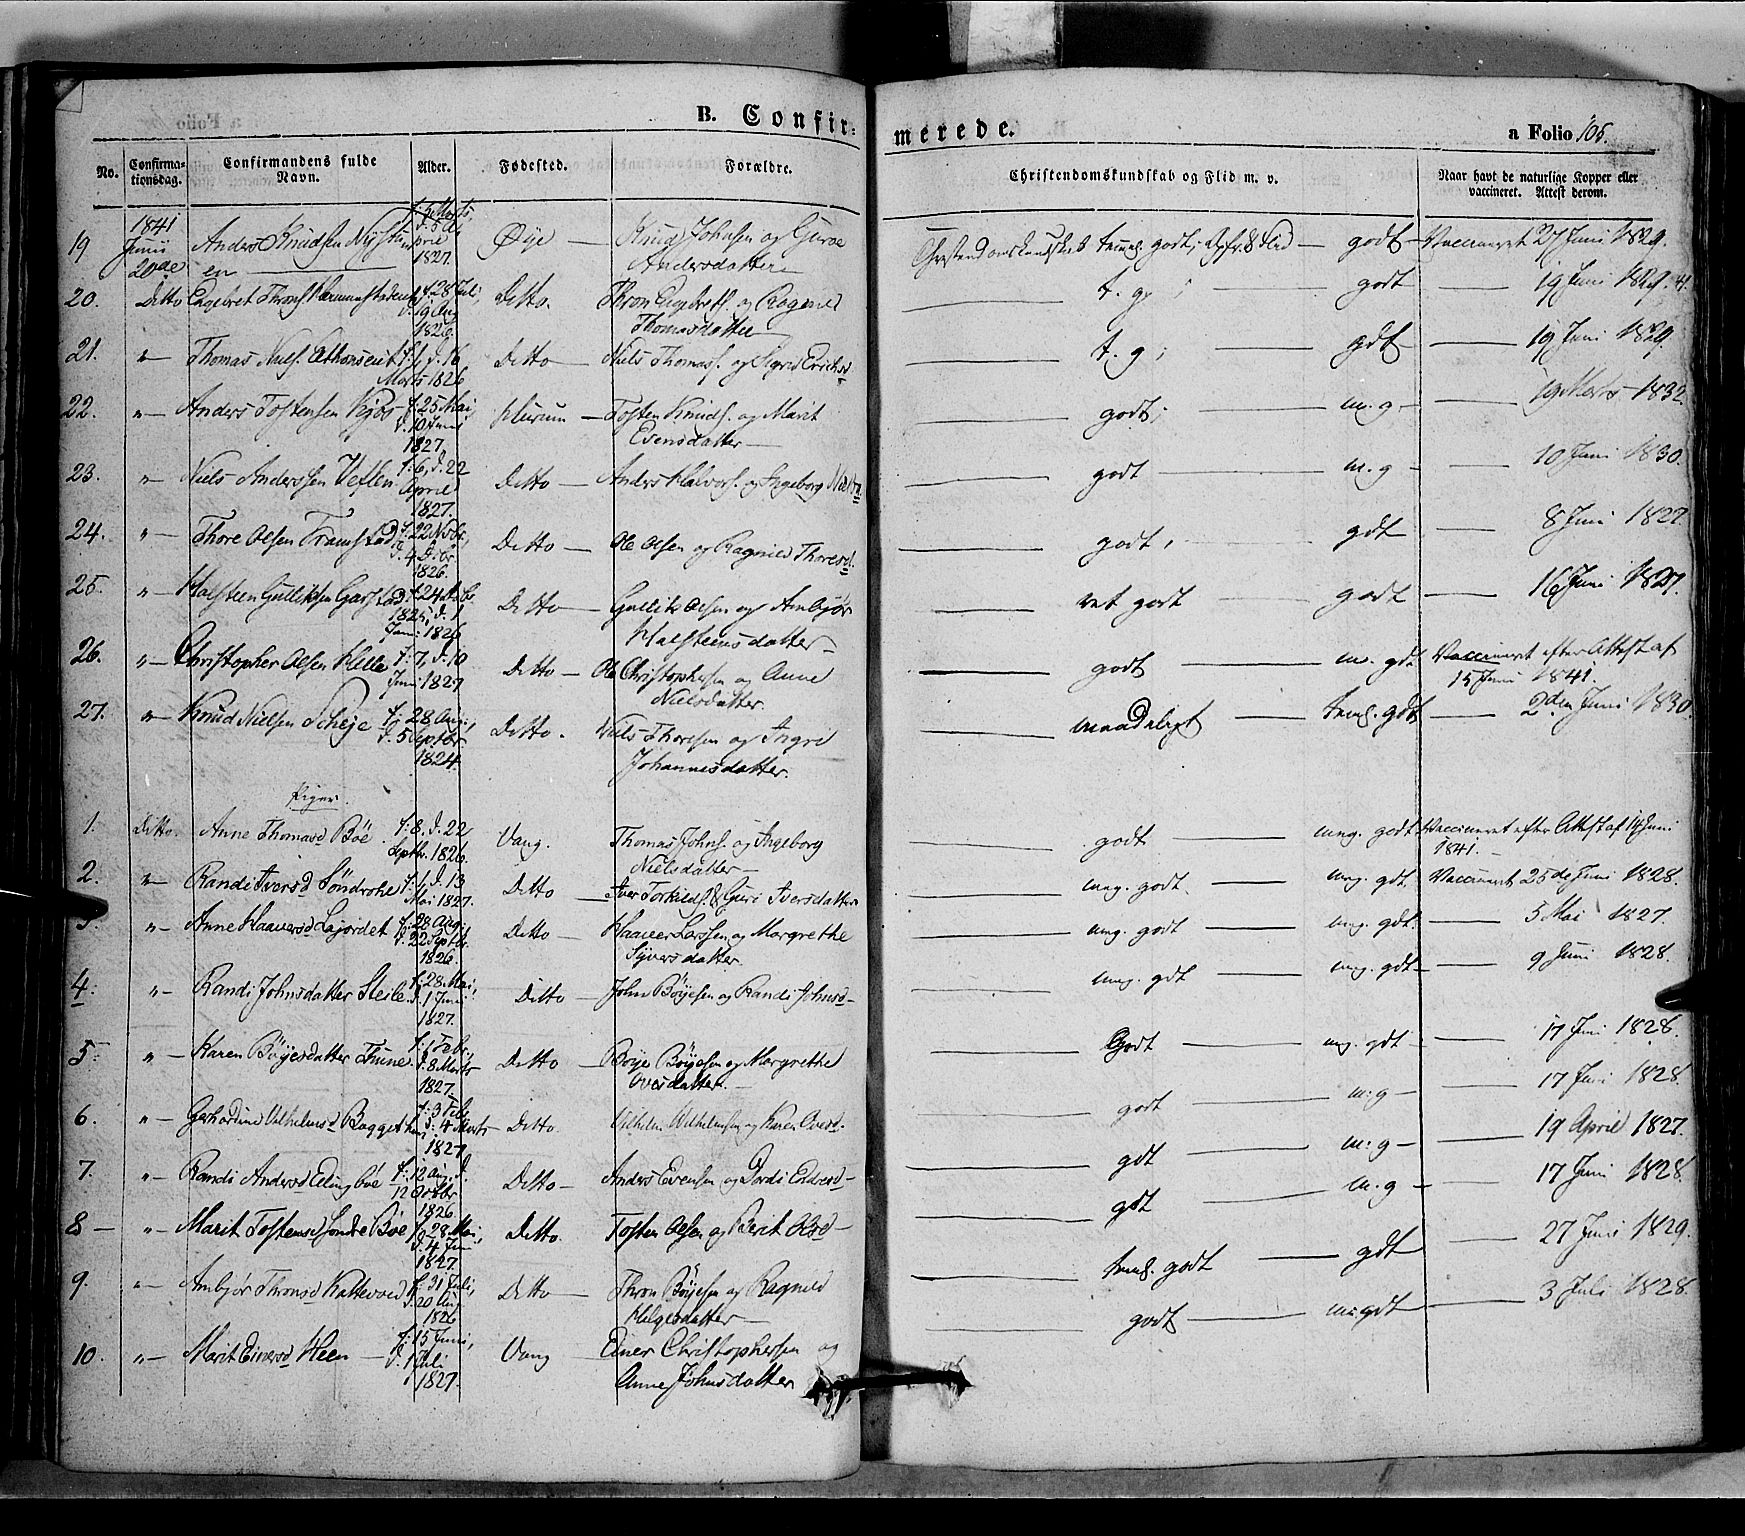 B. Confir-
merede.
a Folio 105.
No.
Confirma-
tionsdag.
Confirmandens fulde
Navn.
Alder.
Fødested.
Forældre.
Christendomskundskab og Flid m. v.
Naar havt de naturlige Kopper eller
vaccineret. Attest derom.
19 1841 Junii 20de Anders Knudsen Nysteen 1827. Øye Knud Johnsen og Guroe Andersdatter Christendomskundskab temml. godt; Opfr. & Flid godt Vaccineret 27 Juni 1829.
20. Ditto Engebret Thronss. f. 28 Juli, d. 19 Aug 1826. Ditto. Thron Engebrets. og Ragnild Thomasdatter t. g; godt 19 Juni 1829.
21. " Thomas Niels. f. 1, d. 16 Marts 1826 Ditto Niels Thomas. og Sigrid Ericksd t. g; gdt 19 Juni 1829.
22. " Anders Tostensen Kjøs f. 25 Mai, d. 10 Juni 1827. Hurum Tosten Knuds. og Marit Evensdatter godt; m. g 19 Marts 1832.
23. " Niels Anderssen Veflen f. 6, d. 22 April 1827. Ditto Anders Halvors. og Ingeborg Nielsd. godt m. g 10 Juni 1830.
24. " Thore Olsen Framstad f. 22 Novbr, d. 4 Decbr 1826. Ditto Ole Olsen og Ragnild Thoresd. godt, gdt 8 Juni 1827.
25. " Halsteen Gulliksen Garstad f. 24 Decbr 1825, d. 1 Janu: 1826 Ditto Gullik Olsen og Ambjør Halsteensdatter ret godt godt 16 Juni 1827.
26. " Christopher Olsen Helle f. 7, d. 10 Juni 1827 Ditto Ole Christophersen og Anne Nielsdatter. godt m. gdt Vaccineret efter Attest af 15 Juni 1841.
27. " Knud Nielsen Skeje f. 28 Aug:, d. 5 Septbr 1824. Ditto. Niels Thoresen og Ingri Johannesdatter. maadeligt teml. gdt 2den Juni 1830.
Piger.
1. Ditto. Anne Thomasd Böe f: 8, d. 22 Septbr. 1826. Vang. Thomas Johns. og Ingeborg Nielsdatter godt meg. godt. Vaccineret efter Attest af 14 Juni 1841.
2. " Randi Iversd Söndrohe f. 1, d. 13 Mai 1827. Ditto Iver Torkilds. & Guri Iversdatter meg. godt. meg. gdt Vaccineret 25de Juni 1828.
3. " Anne Haaversd Lajordet f: 28 Aug:, d. 22 Septbr. 1826. Ditto Haaver Larssen og Margrethe Syversdatter. meg. godt meg. gdt. 5 Mai 1827.
4. " Randi Johnsdatter Steile f: 28 Mai, d. 1 Juni 1827. Ditto John Böyesen og Randi Johnsd meg. gdt meg. gdt 9 Juni 1828.
5. " Karen Böyesdatter Thune f. 1 Febr., d. 8 Marts 1827. Ditto Boye Böyesen og Margrethe Oversdatter. Godt meg. gdt 17 Juni 1828.
6. " Gerhardine Vilhelmsd Bagget f. 3 Feb, d. 4 Marts 1827. Ditto. Vilhelm Wilhelmsen og Karen Oversd. godt m: g 17 Juni 1828.
7. " Randi Andersd Elingböe f. 12 Aug., d. 12 Octbr 1826 Ditto Anders Evensen og Dordi Endresd gdt m: g 19 April 1827.
8 " Marit Tostensd Söndre Böe f. 28 Mai, d. 4 Juni 1827. Ditto. Tosten Olsen og Berit Olsd gdt m. g 17 Juni 1828.
9. " Ambjør Thronsd Kattevold f. 31 Juli, d. 20 Aug 1826 Ditto Thron Böyesen og Ragnild Helgesdatter teml. godt gdt 27 Juni 1829.
10. " Marit Einersd Heen f: 15 Juni, d. 1 Juli 1827. Vang Einer Christophersen og Anne Johnsdatter godt m: gdt 3 Juli 1828.